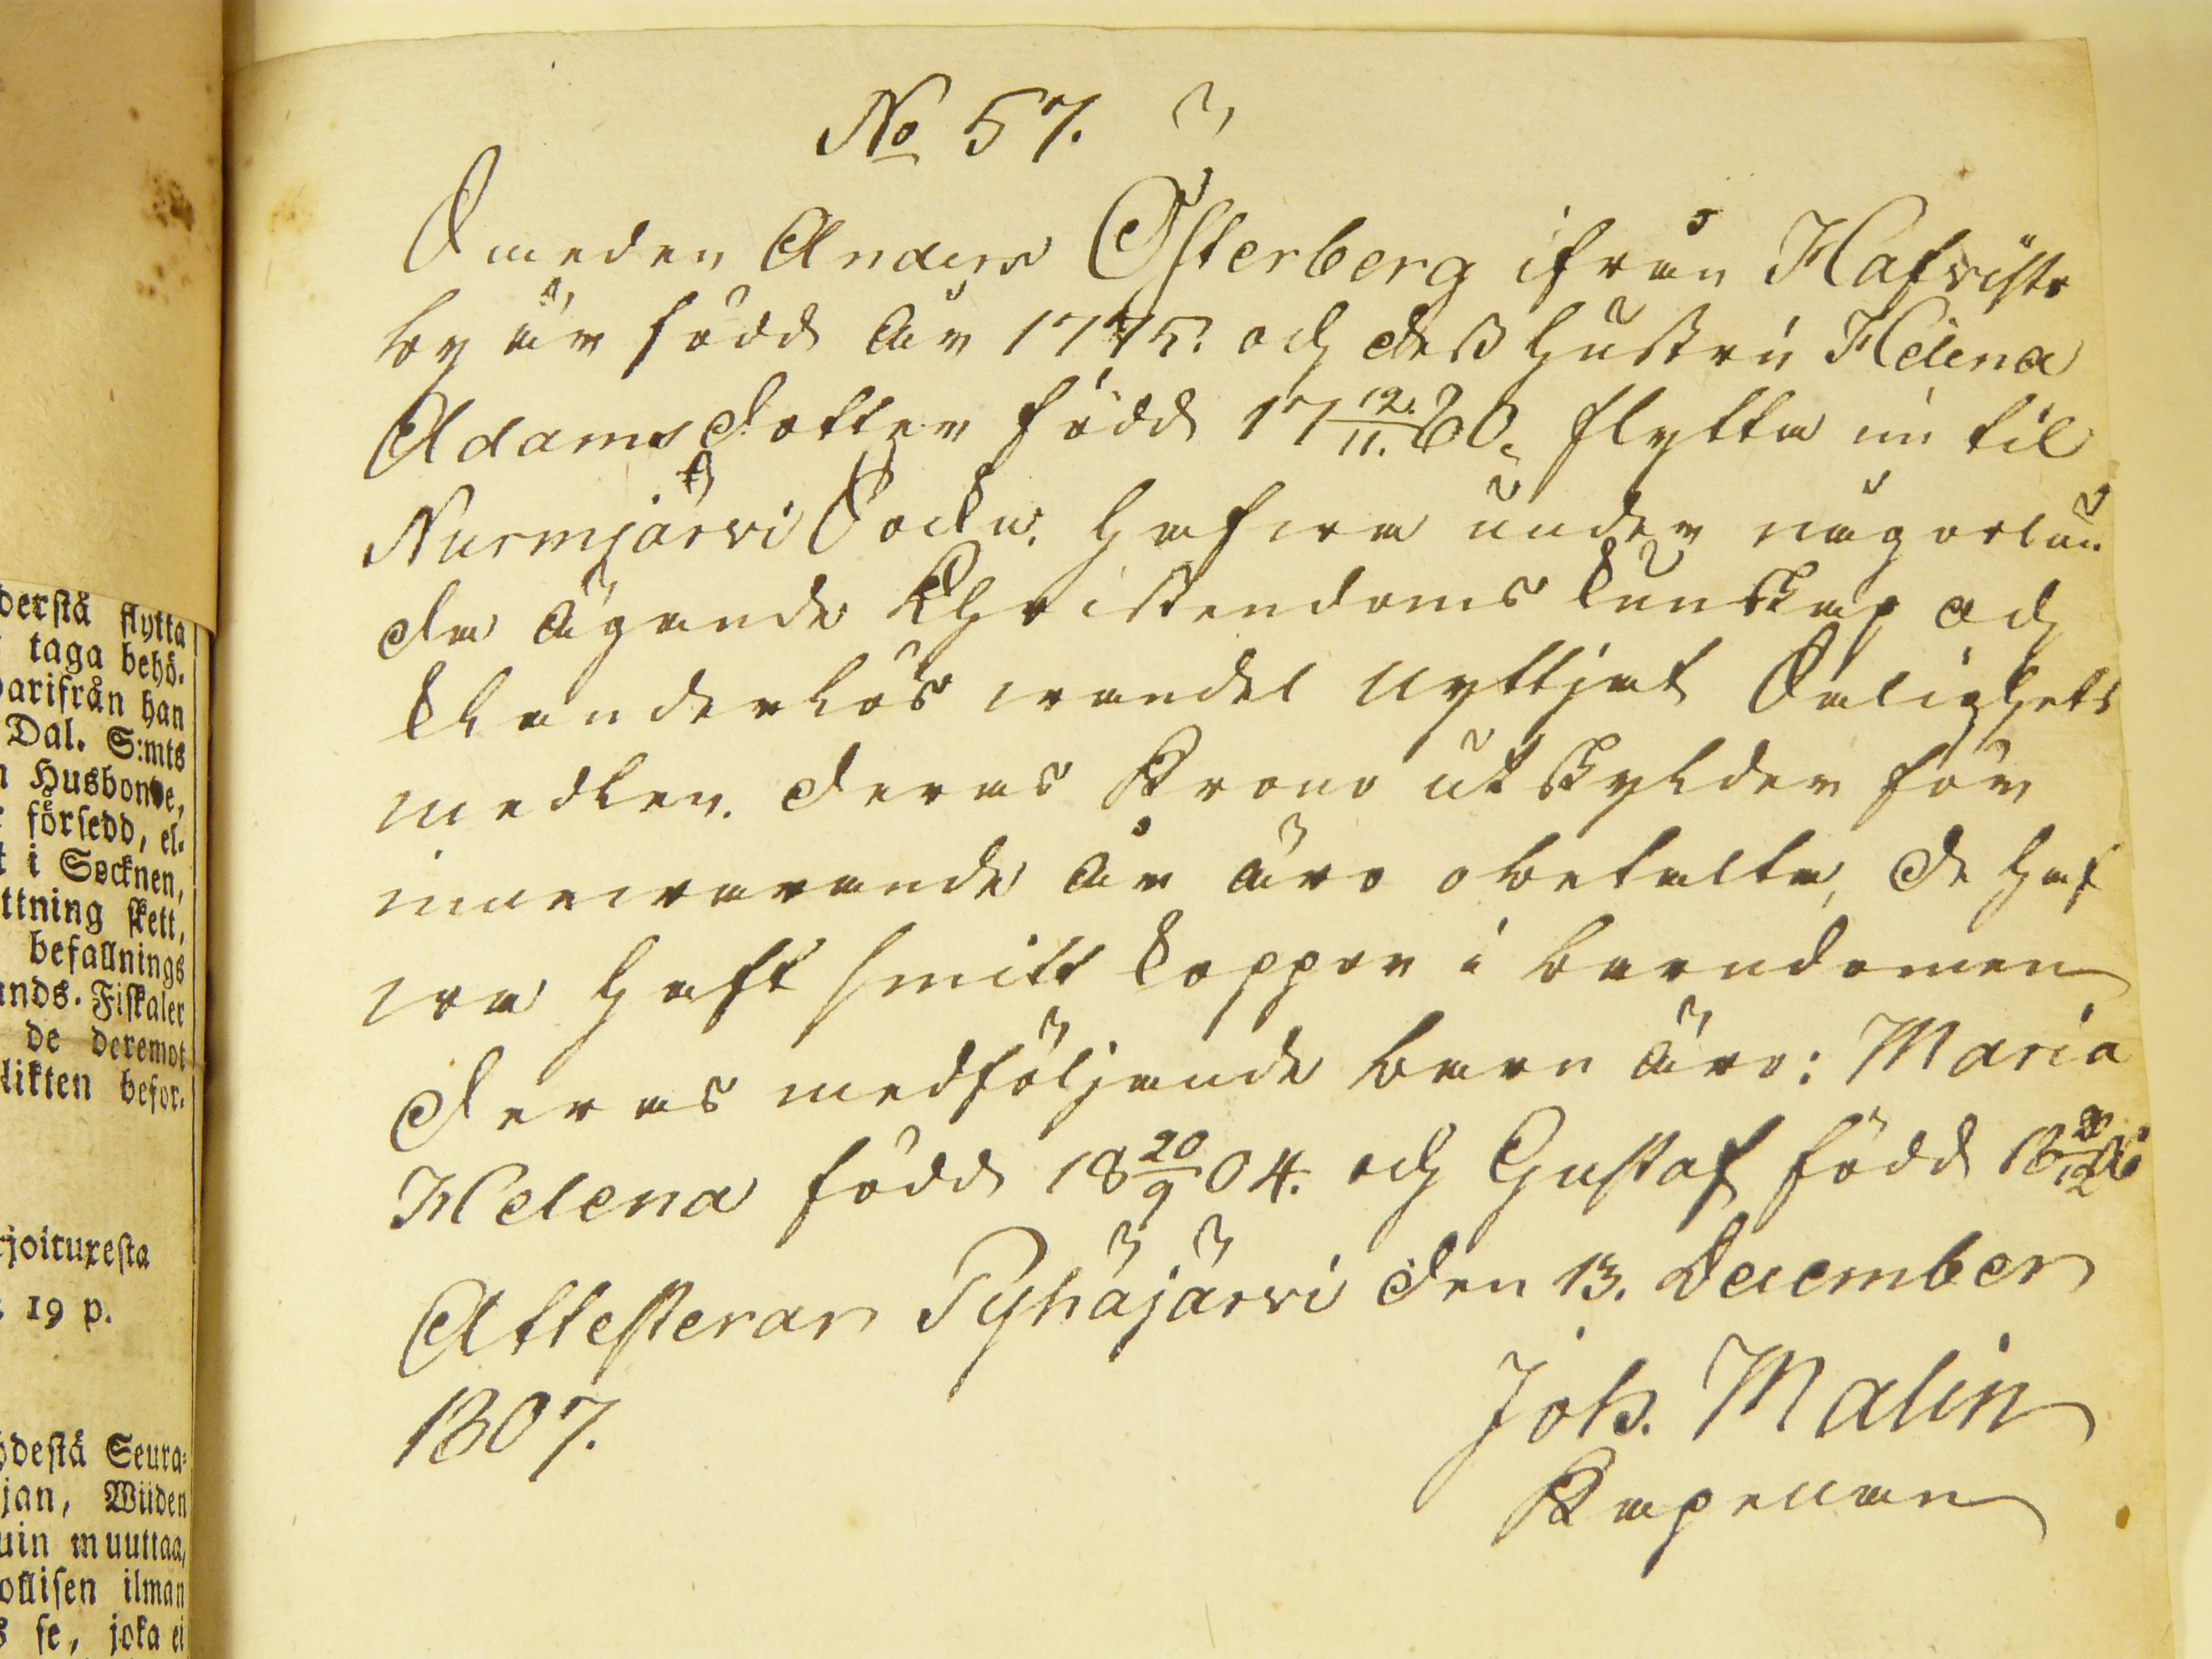 derstå flytta
taga behö-
darifrån han
Dal. S:mts
Husbonde,
försedd, el-
t i Socknen,
ttning skett,
befallnings
ands-Fiskaler
de deremot
likten befor-
rjoituxesta
19 p.
destä Seura-
jan, Wiiden
uin muuttaa,
ollisen ilman
s se, joka ei
No 57.
Smeden Anders Österberg ifrån Hafvisto
by är född år 1775. och dess hustru Helena
Adams dotter född 17 12/11. 80. flytta nu til
Nurmjärvi Sockn. hafwa under någorlun
da ägande Christendoms kunskap och
klanderlös wandel nyttjat Salighets
medlen. Deras Krono utskylder för
innewarande år äro obetalte, de haf
wa haft smitt koppor i barndomen
Deras medföljande barn äro: Maria
Helena född 18 20/9 04. och Gustaf född
Attesterar Pyhäjärvi den 13. December
1807.
Joh. Malin
Kapellan